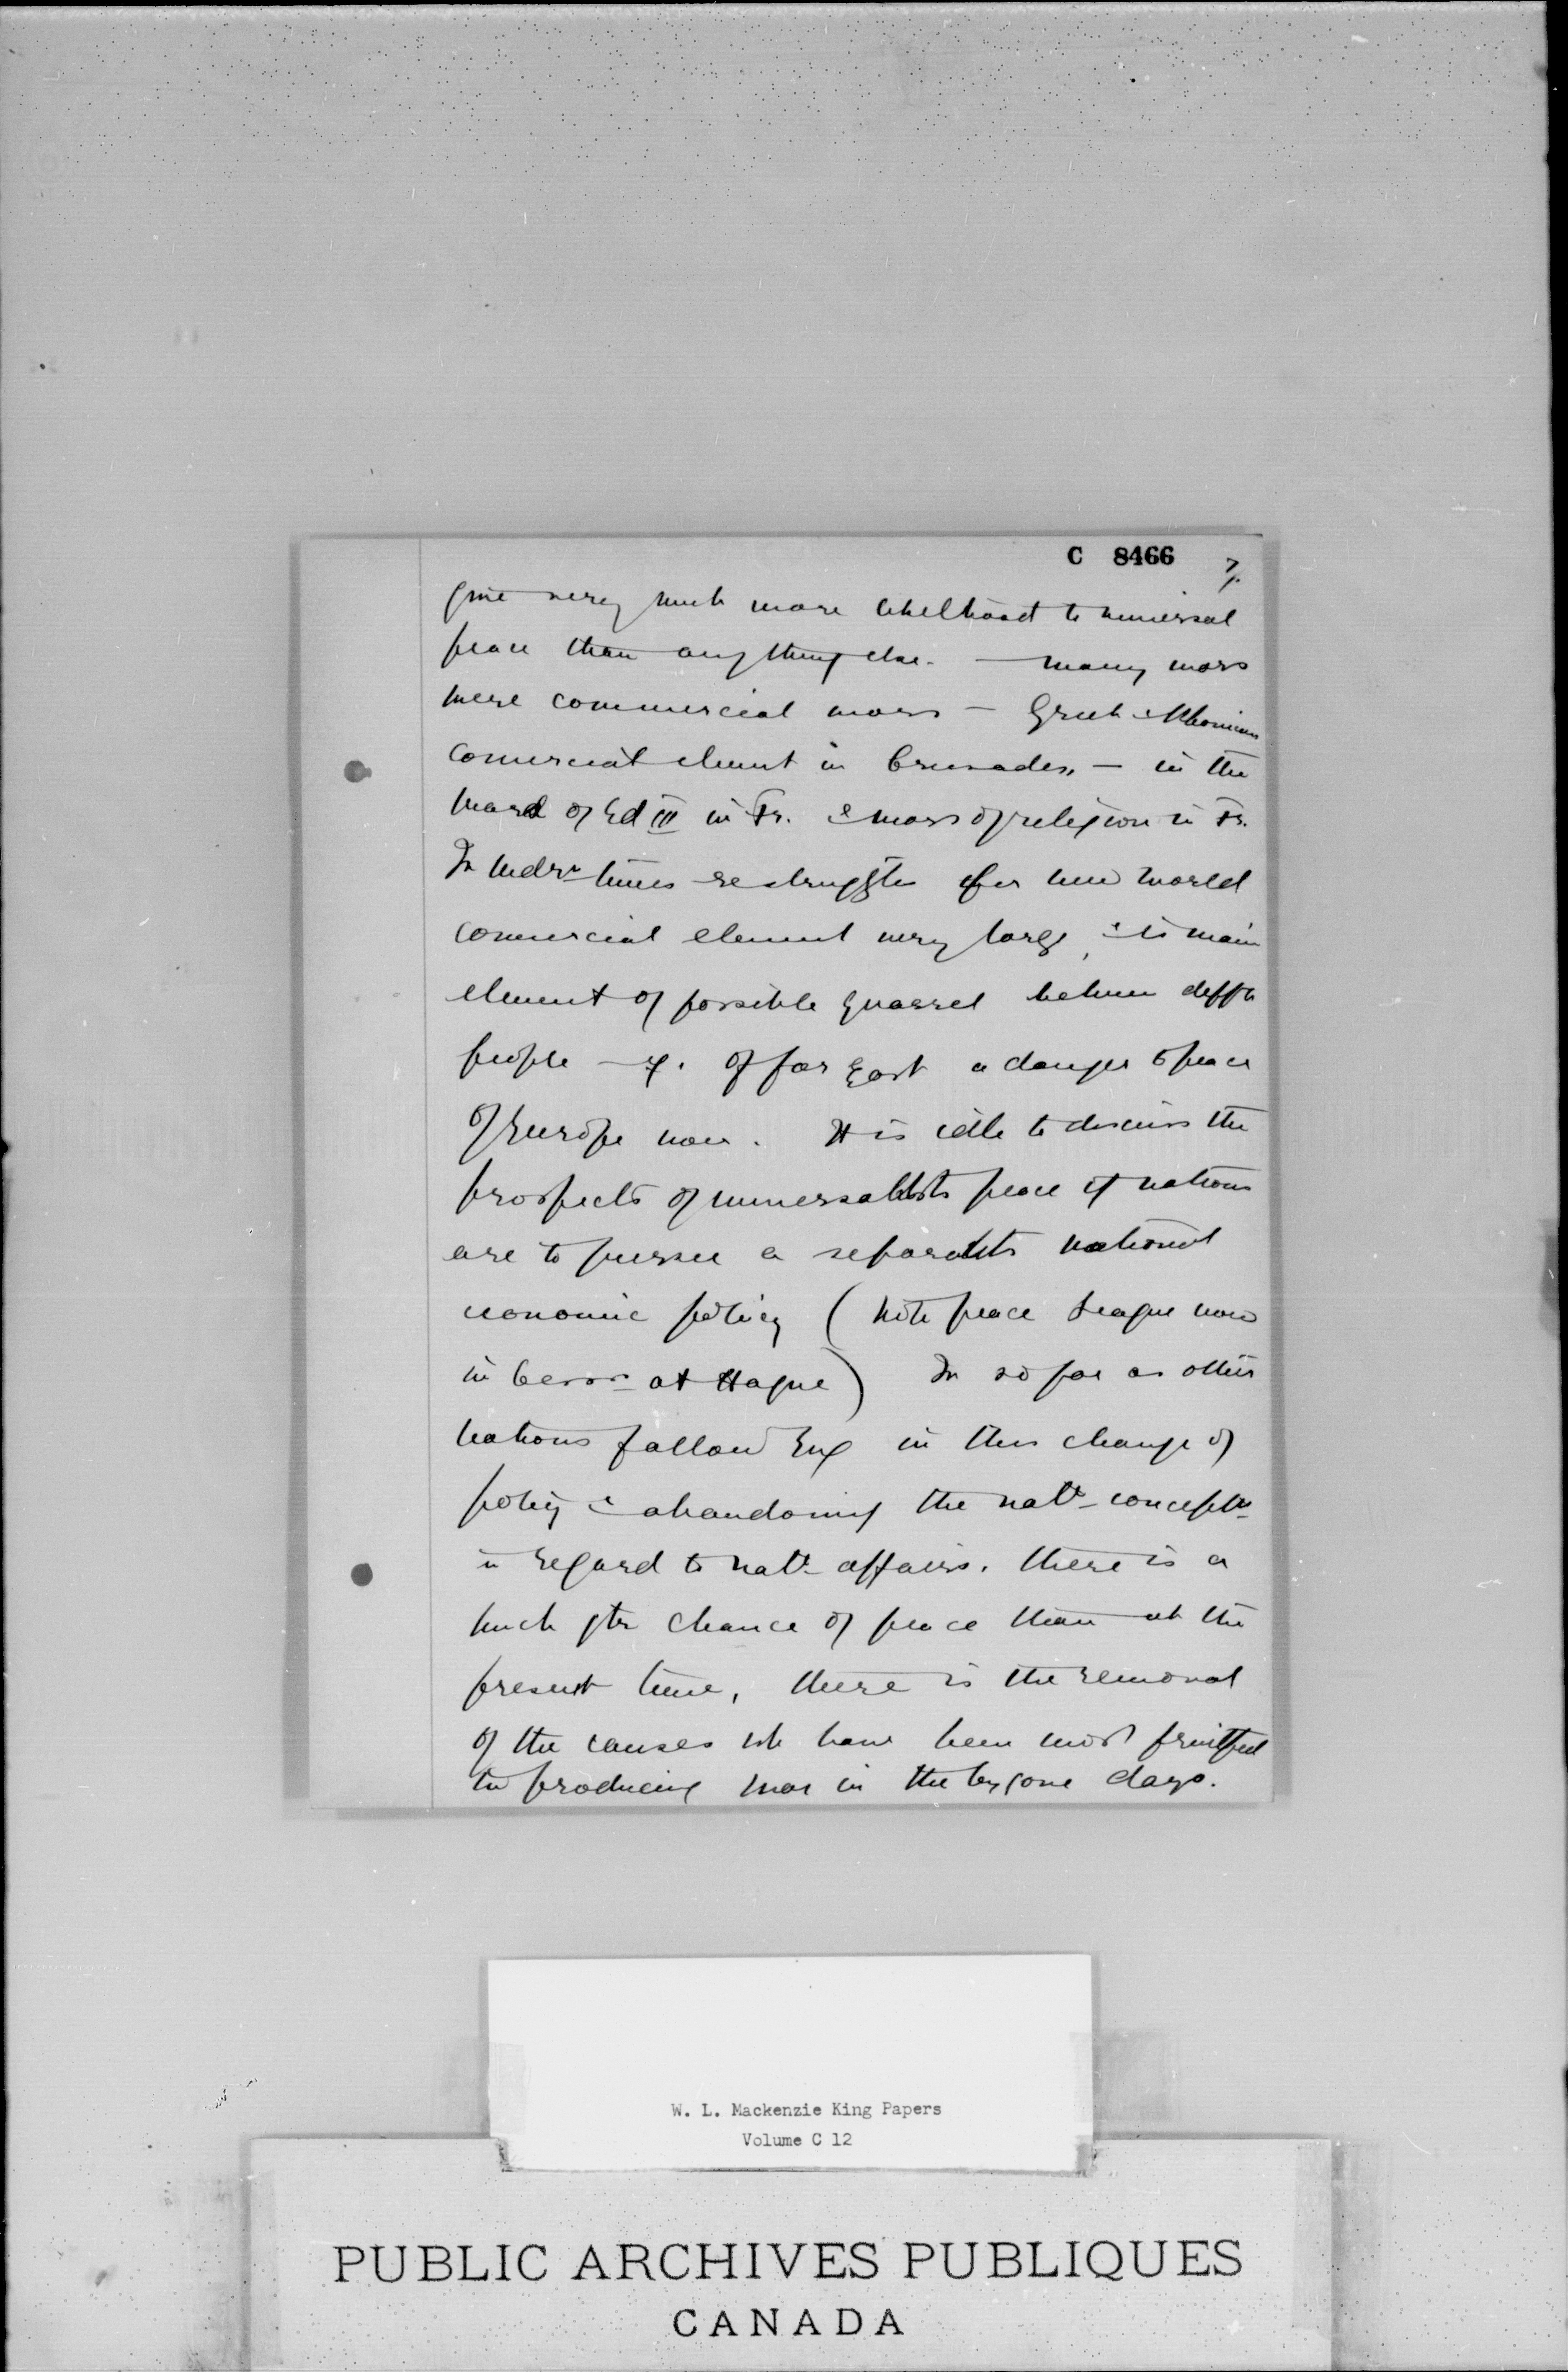 C 8466
7.
give very much more likelihood to universal
peace than anything else. — many wars
were commercial wars — Greek &
comercial elemt in Crusades, — in the
wars of Ed III in Fr. & wars of religion in Fr.
In modrn times re struggles for new world
comercial element very large, & is main
element of possible quarrel between difft
people — of far East a danger to peace
of Europe now. It is idle to discuss the
prospects of peace if nations
are to pursue a separate national
economic policy (note peace League now
in at Hague) In so far as other
nations follow Eng in this change of
policy & abandoning the natl conceptn
in regard to natl affairs, there is a
much gtr chance of peace than at the
present time, there is the removal
of the causes wh have been most fruitful
in producing war in the bygone days.
W. L. Mackenzie King Papers
Volume C 12
PUBLIC ARCHIVES PUBLIQUES
CANADA